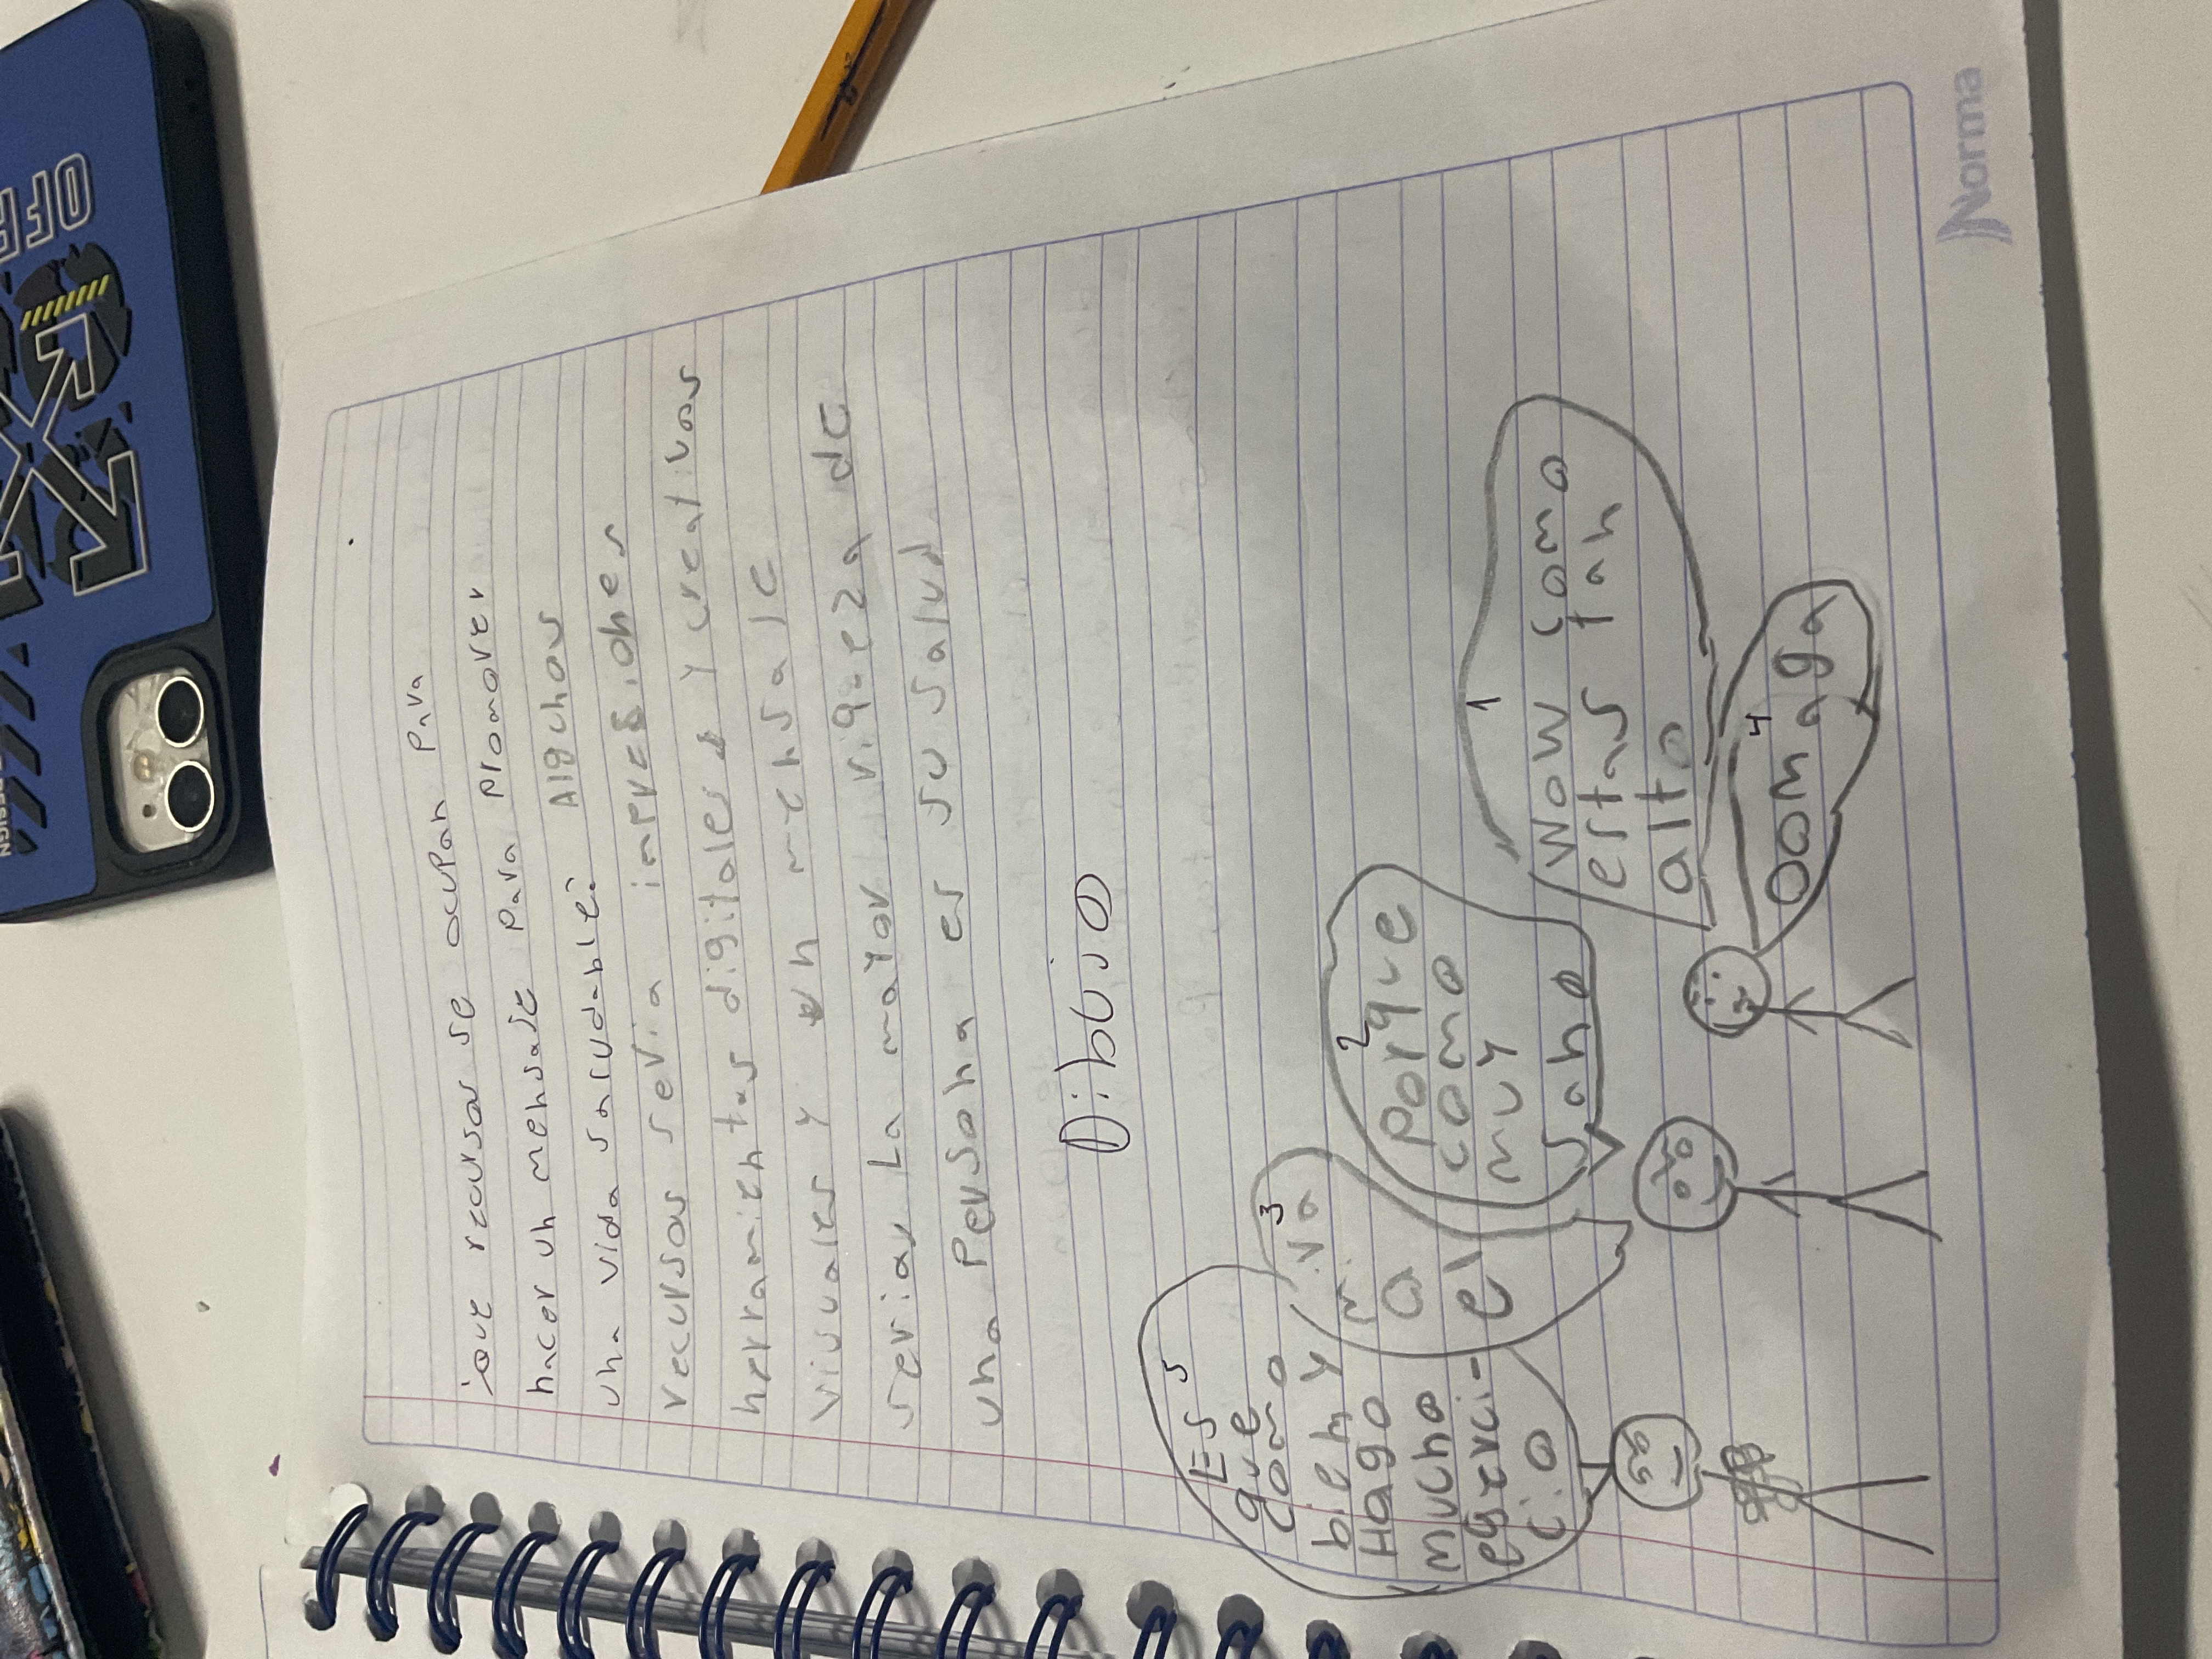 ¿que recursos se ocupan para
hacer un mensaje para promover
una vida saludable: Algunos
recursos seria impresiones
herramientas digitales y creativos
visuales y un mensaje
seria La mayor riqueza de
una persona es su salud
Dibujo
1
Wow como
estas tan
alto
2
Porque
como
muy
sano
3
Mira
a
el
4
oomaga
5
Es
que
como
bien y
Hago
mucho
egerci-
cio
Norma
OFF
DESIGN